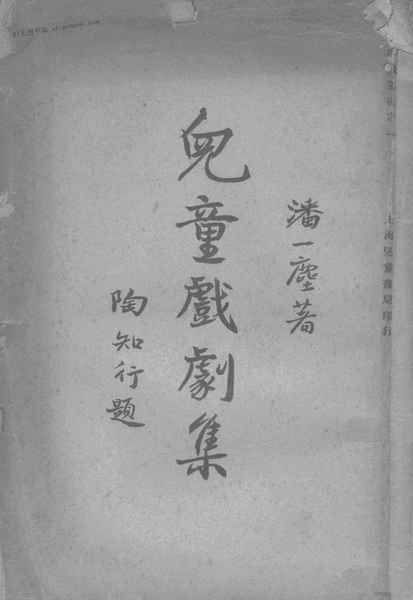 潘一塵著
兒童戲劇集
陶知行題
上海兒童書局印行